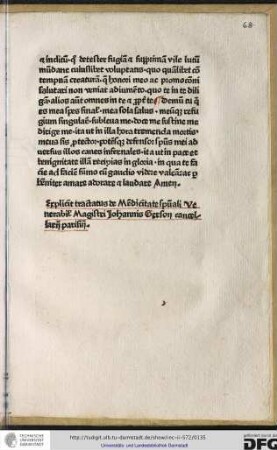 68
⁊ indicũ· ꝙ detester fugiã ⁊ supprimã vile lutũ
mũdane
voluptatis· quo
tempnã creaturã· ꝙ honori meo ac
salutari non veniat adiumẽto· quo te in te dili
gã· alios aũt omnes in te ⁊ ꝓpt̃ te. domũ
es mea spes
mea sola salus·
gium singulare· subleua me· doce me sustine me
dirige me· ita ut in illa hora tremenda mortis
mtua sis ꝓtector· potẽsqꝫ defensor spũs mei ad
uersus illos canes infernales· ita ut in pace et
benignitate illã recipias in gloria· in qua te fa
cie ad faciẽ sũmo cũ gaudio videre
amare adorare ⁊ laudare Amen·
Explicit tractatus de Mẽdicitate spũali Ve
nerabilis Magistri Johannis Gerson cancel
larij parisiẽ·
http://tudigit.ulb.tu-darmstadt.de/show/inc-ii-572/0135
Universitäts- und Landesbibliothek Darmstadt
gefördert durch die
DFG